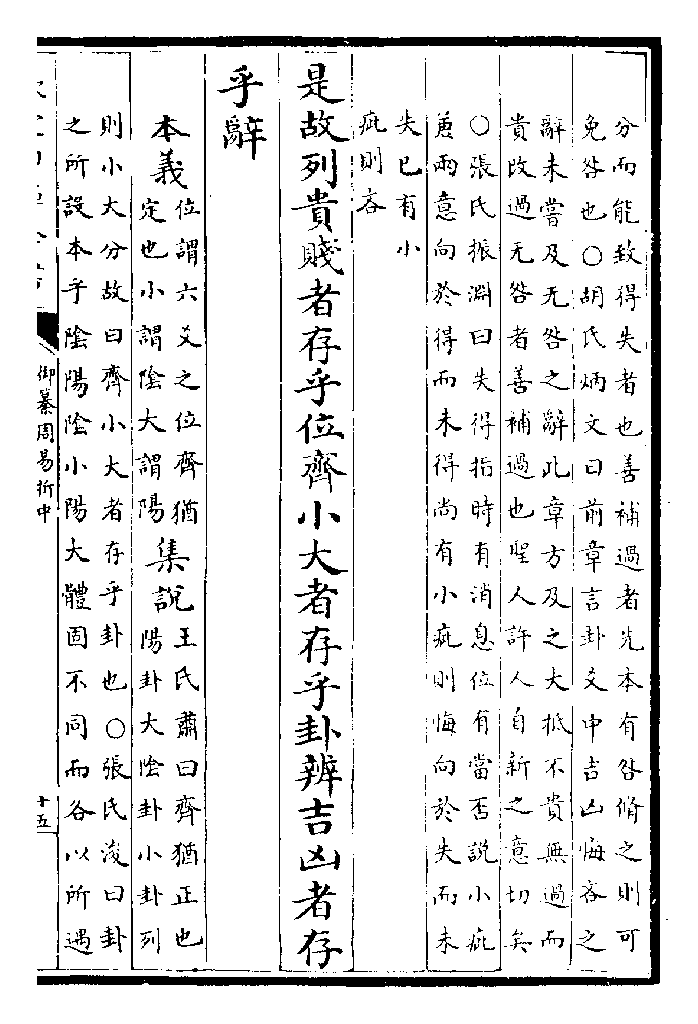 分而能致得失者也善補過者先本有咎脩之則可
免咎也○胡氏炳文曰前章言卦爻中吉凶悔吝之
辭未嘗及无咎之辭此章方及之大抵不貴無過而
貴改過无咎者善補過也聖人許人自新之意切矣
○張氏振淵曰失得指時有消息位有當否說小疵
兼兩意向於得而未得尚有小疵則悔向於失而未
失已有小
疵則吝
是故列貴賤者存乎位齊小大者存乎卦辨吉凶者存
乎辭
本義
位謂六爻之位齊猶
定也小謂陰大謂陽
集說
王氏肅曰齊猶正也
陽卦大陰卦小卦列
則小大分故曰齊小大者存乎卦也○張氏浚曰卦
之所設本乎陰陽陰小陽大體固不同而各以所遇
御纂周易折中
十五